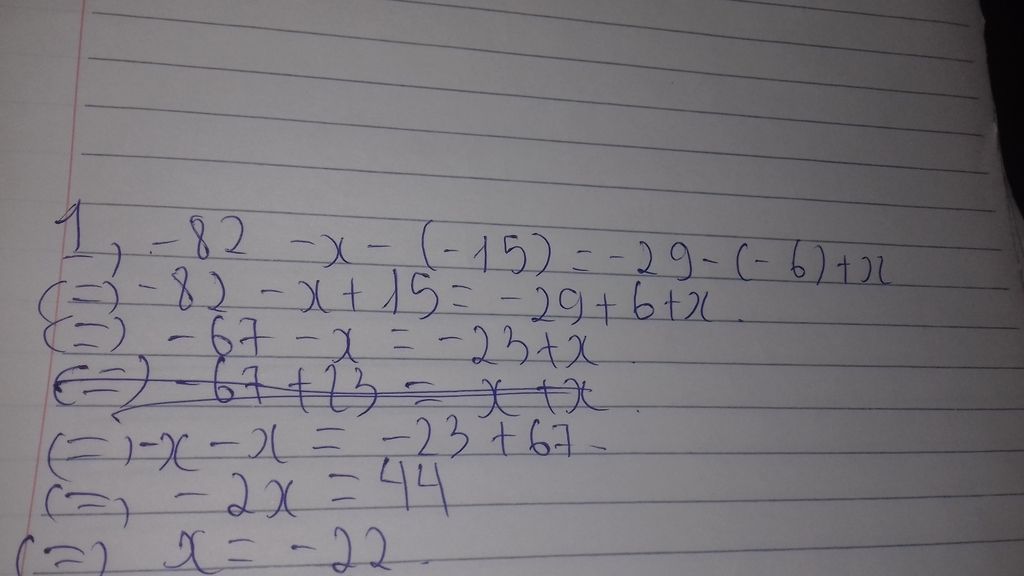 1, -82 -x - (-15) = -29 - (-6) + x
(=) -82 - x + 15 = -29 + 6 + x.
(=) -67 - x = -23 + x.
(=) -67 + 23 = x + x.
(=) -x - x = -23 + 67-
(=) -2x = 44
(=) x = -22.